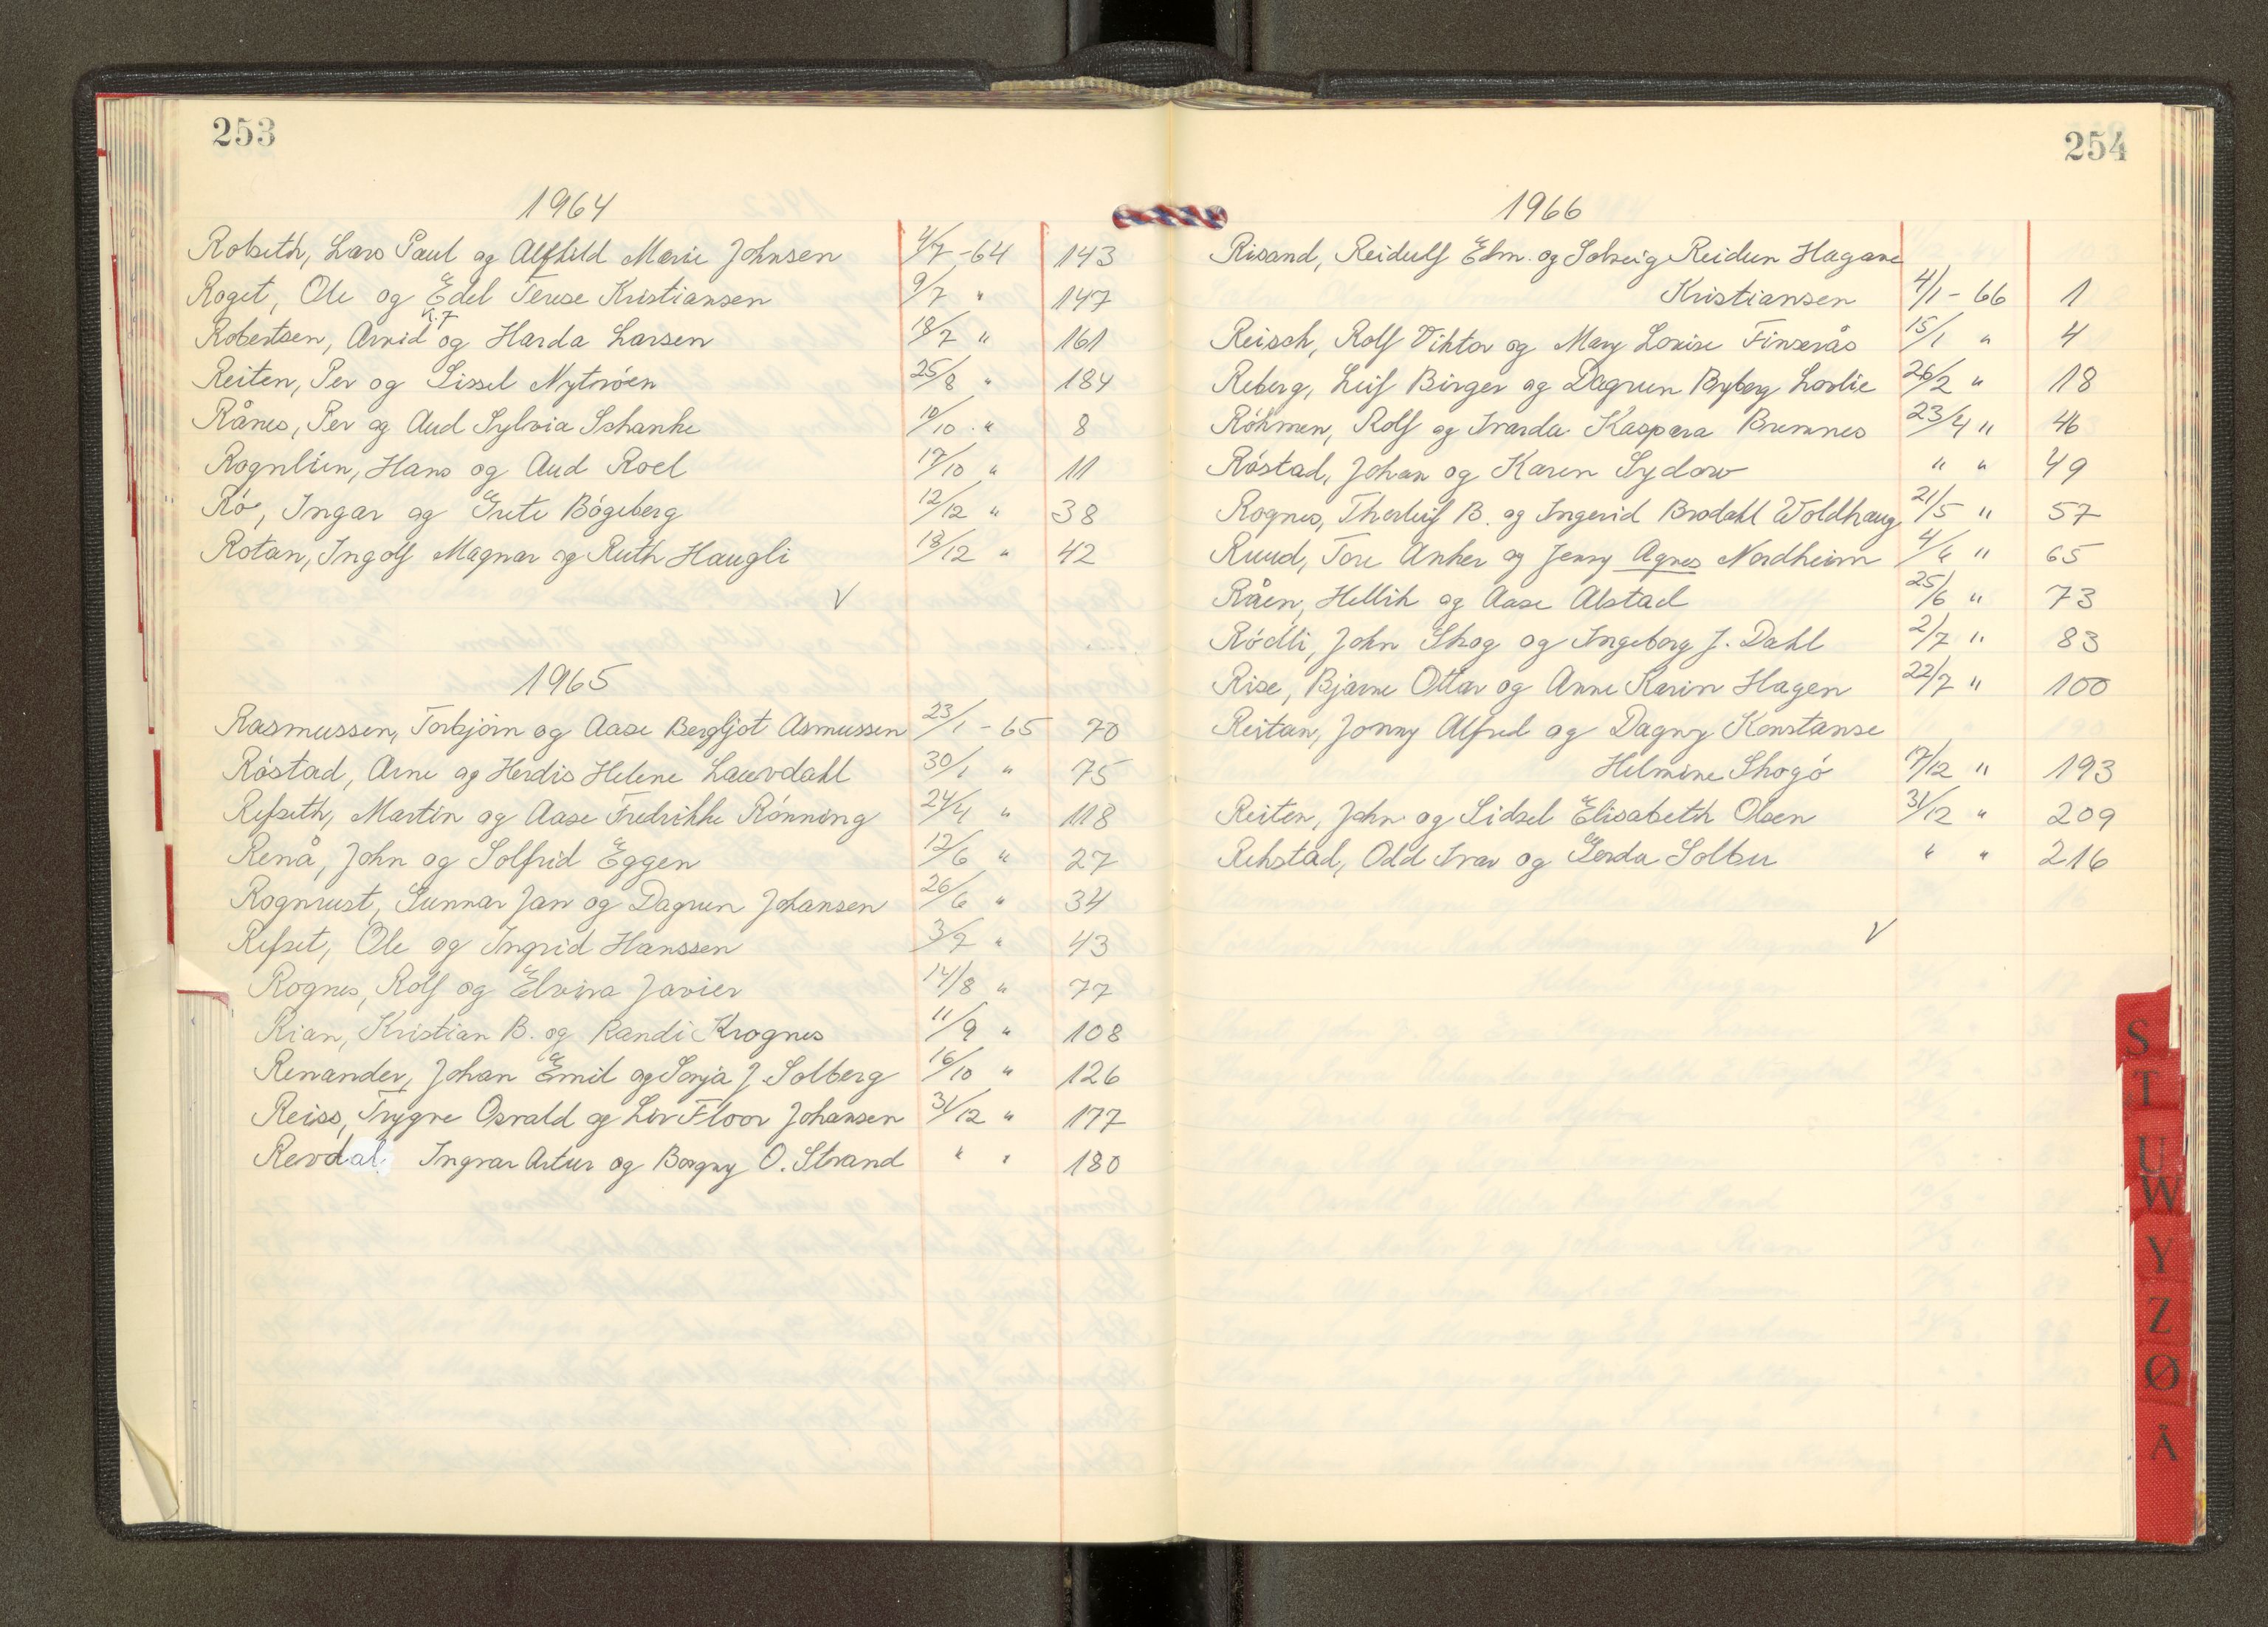 253
1964
Robseth, Lars Paul og Alfhild Marie Johnsen 4/7 - 64 143
Roget, Ole og Edel Terese Kristiansen 9/7 " 147
K.F
Robertsen, Arvid og Harda Larsen 18/7 " 161
Reiten, Per og Sissel Nytrøen 25/8 " 184
Rånes, Per og Aud Sylvia Schanke 10/10 " 8
Rognlien, Hans og Aud Roel 17/10 " 11
Rø, Ingar og Grete Bøgeberg 12/12 " 38
Rotan, Ingolf Magnar og Ruth Haugli 18/12 " 42
V
1965
Rasmussen, Torbjørn og Aase Bergljot Asmussen 23/1 - 65 70
Røstad, Arne og Herdis Helene Lauvdahl 30/1 " 75
Refseth, Martin og Aase Fredrikke Rønning 24/4 " 118
Renå, John og Solfrid Eggen 12/6 " 27
Rognrust, Gunnar Jan og Dagrun Johansen 26/6 " 34
Refset, Ole og Ingrid Hanssen 3/7 " 43
Rognes, Rolf og Elvira Javier 14/8 " 77
Rian, Kristian B. og Randi Krognes 11/9 " 108
Renander, Johan Emil og Sonja J. Solberg 16/10 " 126
Reiss, Trygve Osvald og Liv Floor Johansen 31/12 " 177
Revdal, Ingvar Artur og Borgny O. Strand " " 180
254
1966
Risand, Reidulf Elm. og Solveig Reidun Hagane
Kristiansen 4/1 - 66 1
Reisch, Rolf Viktor og Mary Louise Finserås 15/1 " 4
Reberg, Leif Birger og Dagrun Ryberg Lorlie 26/2 " 18
Røkmen, Rolf og Ivarda Kaspara Bremnes 23/4 " 46
Røstad, Johan og Karen Sydow " " 49
Rognes, Thorleif B. og Ingerid Brodahl Woldhaug 21/5 " 57
Ruud, Tore Anker og Jenny Agnes Nordheim 4/6 " 65
Råen, Hellik og Aase Alstad 25/6 " 73
Rødli, John Skog og Ingeborg J. Dahl 2/7 " 83
Rise, Bjarne Ottar og Anne Karin Hagen 22/7 " 100
Reitan, Jonny Alfred og Dagny Konstanse
Helmine Skogø 17/12 " 193
Reiten, John og Sidsel Elisabeth Olsen 31/12 " 209
Rekstad, Odd Ivar og Gerda Solbu " " 216
V
S
T
U
W
Y
Z
Ø
Å